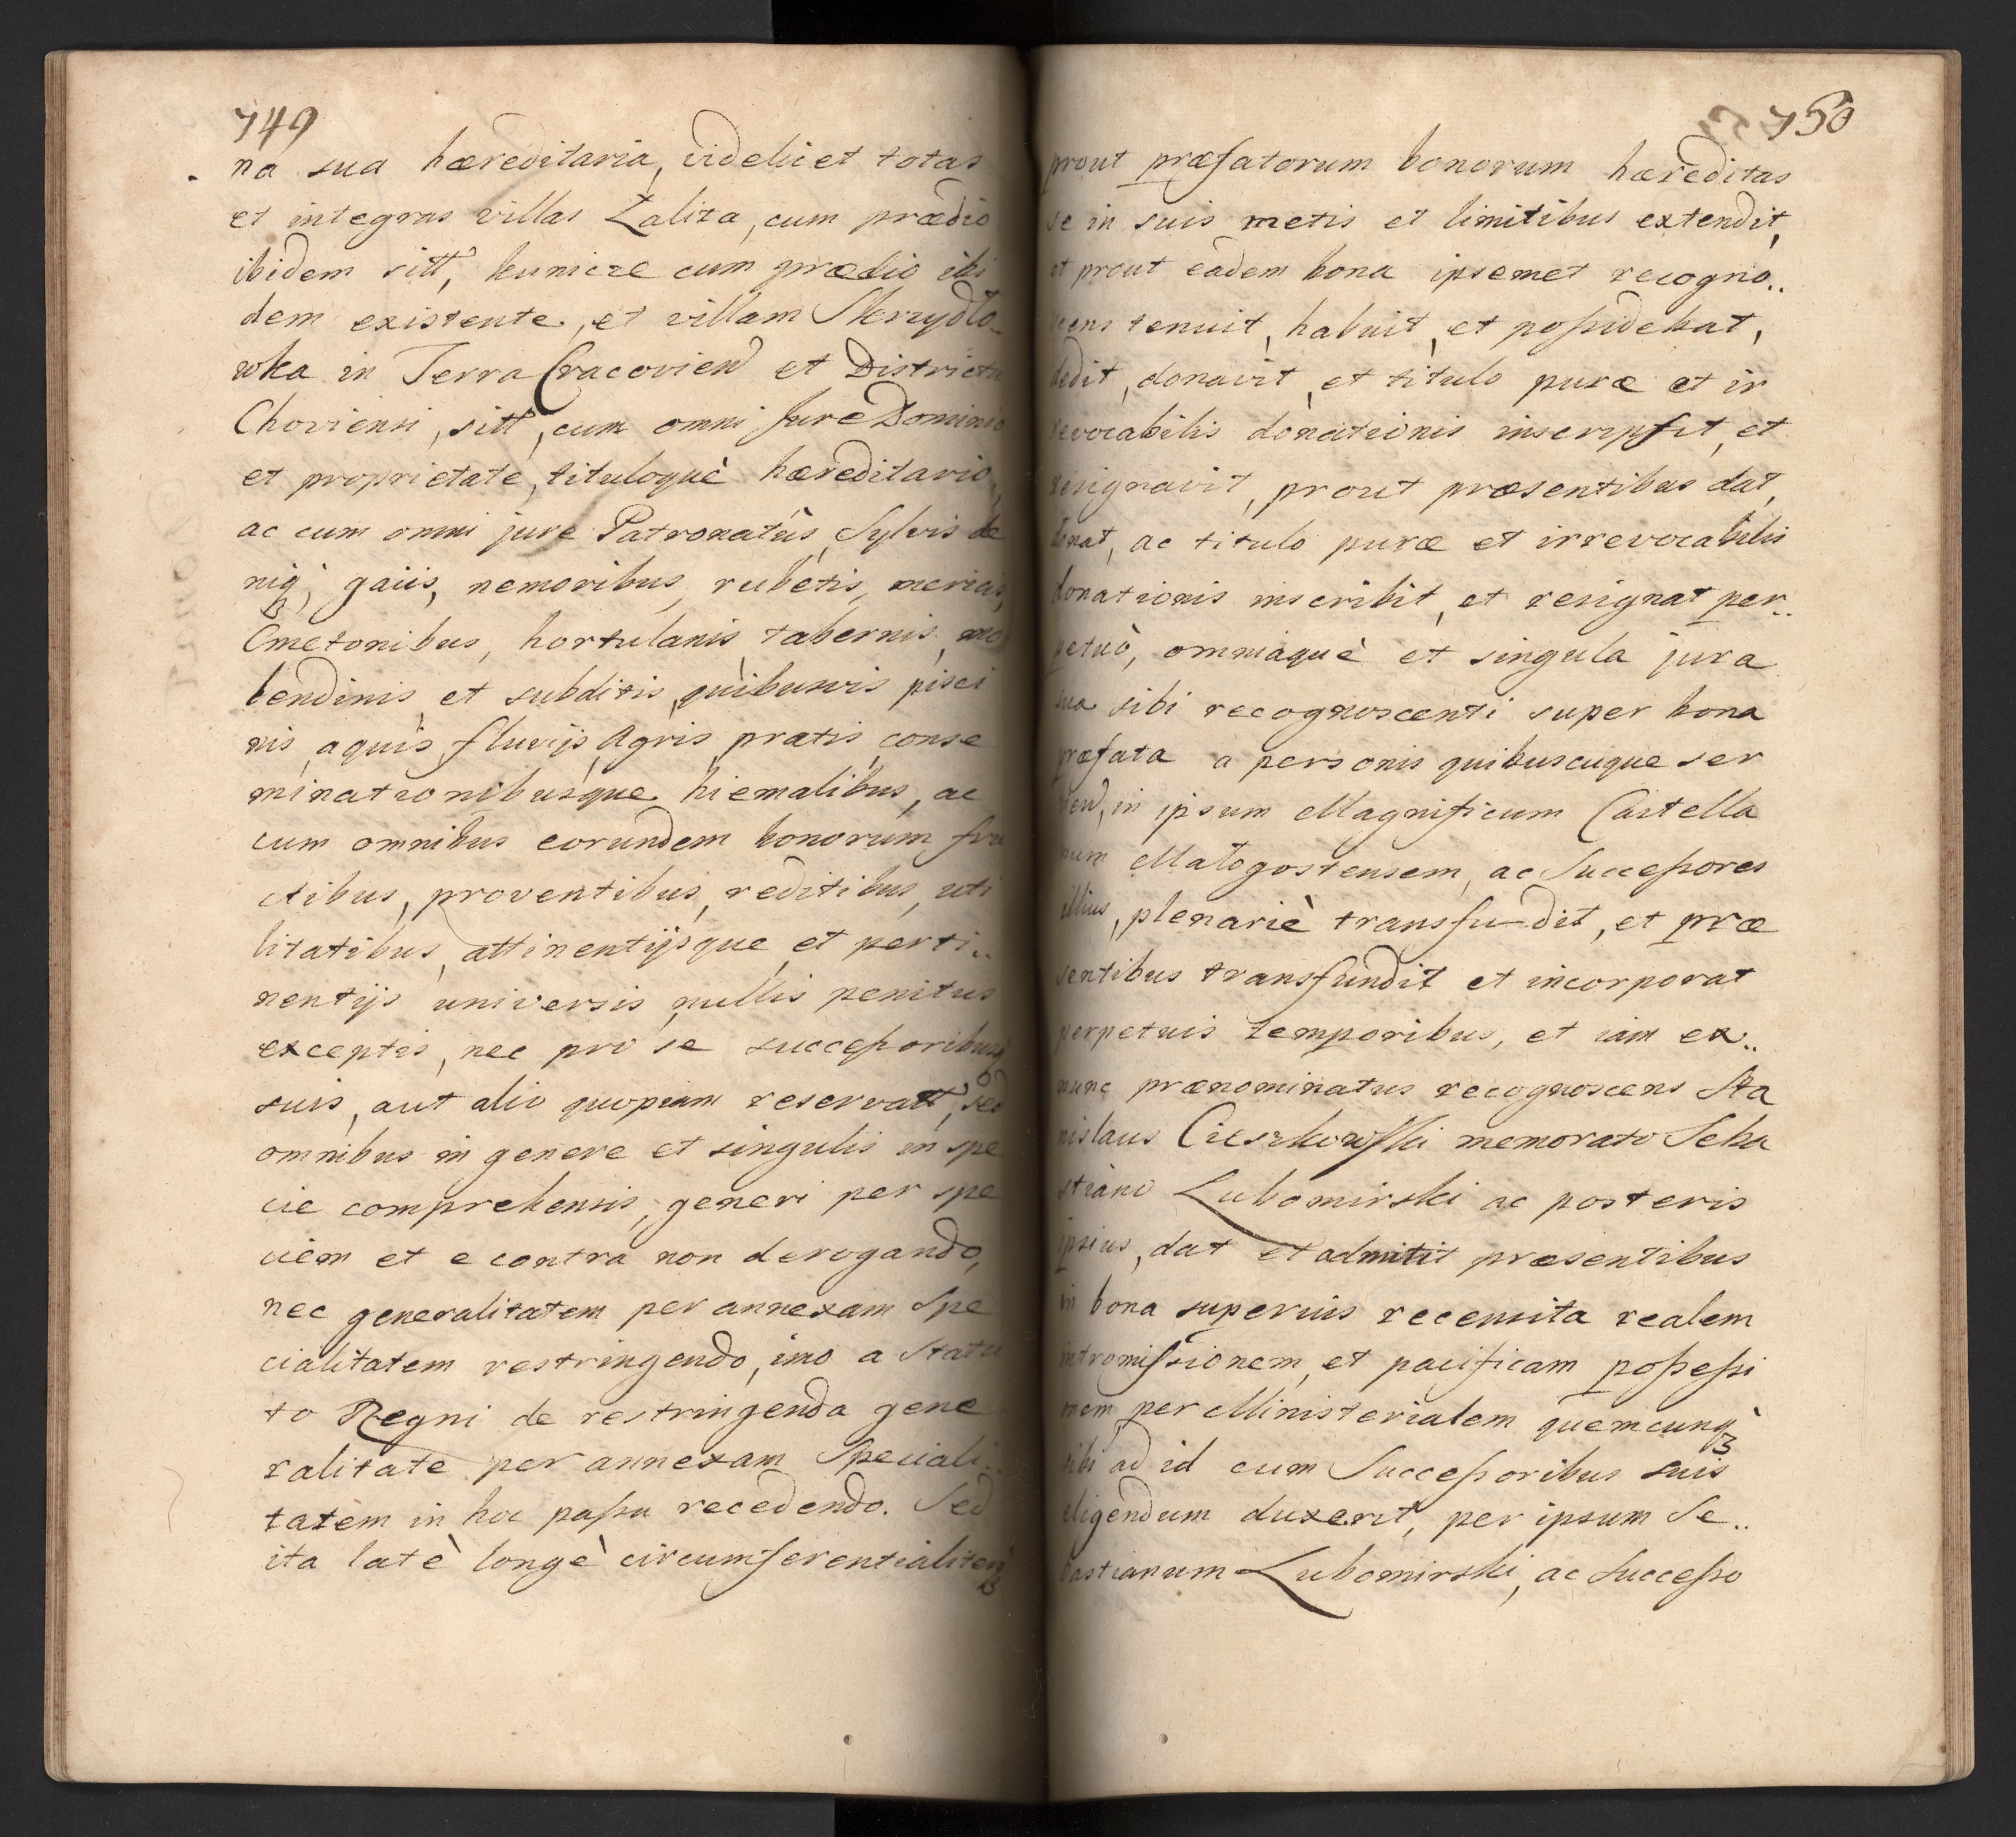 749
na sua hæreditaria, videlicet totas
et integras villas Zaliza, cum prædio
ibidem sitt, kunicze cum prædio ibi
dem existente, et villam Skrzydło-
wka in Terra Cracovien et Districtu
Choviensi, sitt, cum omni Jure Dominio
et proprietate, tituloquè hæreditario,
ac cum omni jure Patronatûs, Sylvis de
niq; gaiis, nemoribus, rubetis, mericis,
Cmetonibus, hortulanis, tabernis, mo
lendinis, et subditis, quibusvis pisci
nis, aquis, fluvijs, Agris, pratis, conse
minationibusque hiemalibus, ac
cum omnibus eorundem bonorum fru
ctibus, proventibus, reditibus, uti
litatibus, attinentijsque et perti..
nentijs universis, nullis penitus
exceptis, nec pro se successoribusq
suis, aut alio quopiam reservatt, sed
omnibus in genere et singulis in spe
cie comprehensis, generi per spe
ciem et e contra non derogando,
nec generalitatem per annexam Spe
cialitatem restringendo, imo a Statu
to Regni de restringenda gene
ralitate per annexam Speciali..
tatem in hoc passu recedendo. Sed
ita latè longè circumferentialiterq
750
prout præfatorum bonorum hæreditas
se in suis metis et limitibus extendit,
et prout eadem bona ipsemet recogno..
scens tenuit, habuit, et possidebat,
dedit, donavit, et titulo puræ et ir
revocabilis donationis inscripsit, et
resignavit, prout præsentibus dat,
donat, ac titulo puræ et irrevocabilis
donationis inscribit, et resignat per..
petuò, omniaquè et singula jura
sua sibi recognoscenti super bona
præfata a personis quibuscuque ser
vien, in ipsum Magnificum Castella
num Małogostensem, ac Successores
illius, plenariè transfu-dit, et præ
sentibus transfundit et incorporat
perpetuis temporibus, et iam ex..
nunc prænominatus recognoscens Sta
nislaus Cieszkowski memorato Seba
stiano Lubomirski ac posteris
ipsius, dat et admitit præsentibus
in bona superius recensita realem
intromissionem, et pacificam possessi
onem per Ministerialem quemcunq
sibi ad id cum Successoribus suis
eligendum duxerit, per ipsum Se..
bastianum Lubomirski, ac Successo